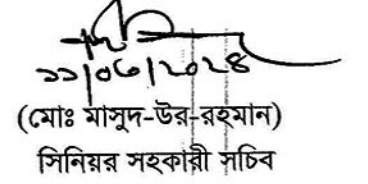 ১১/০৬/২০২৪
(মোঃ মাসুদ-উর-রহমান)
সিনিয়র সহকারী সচিব